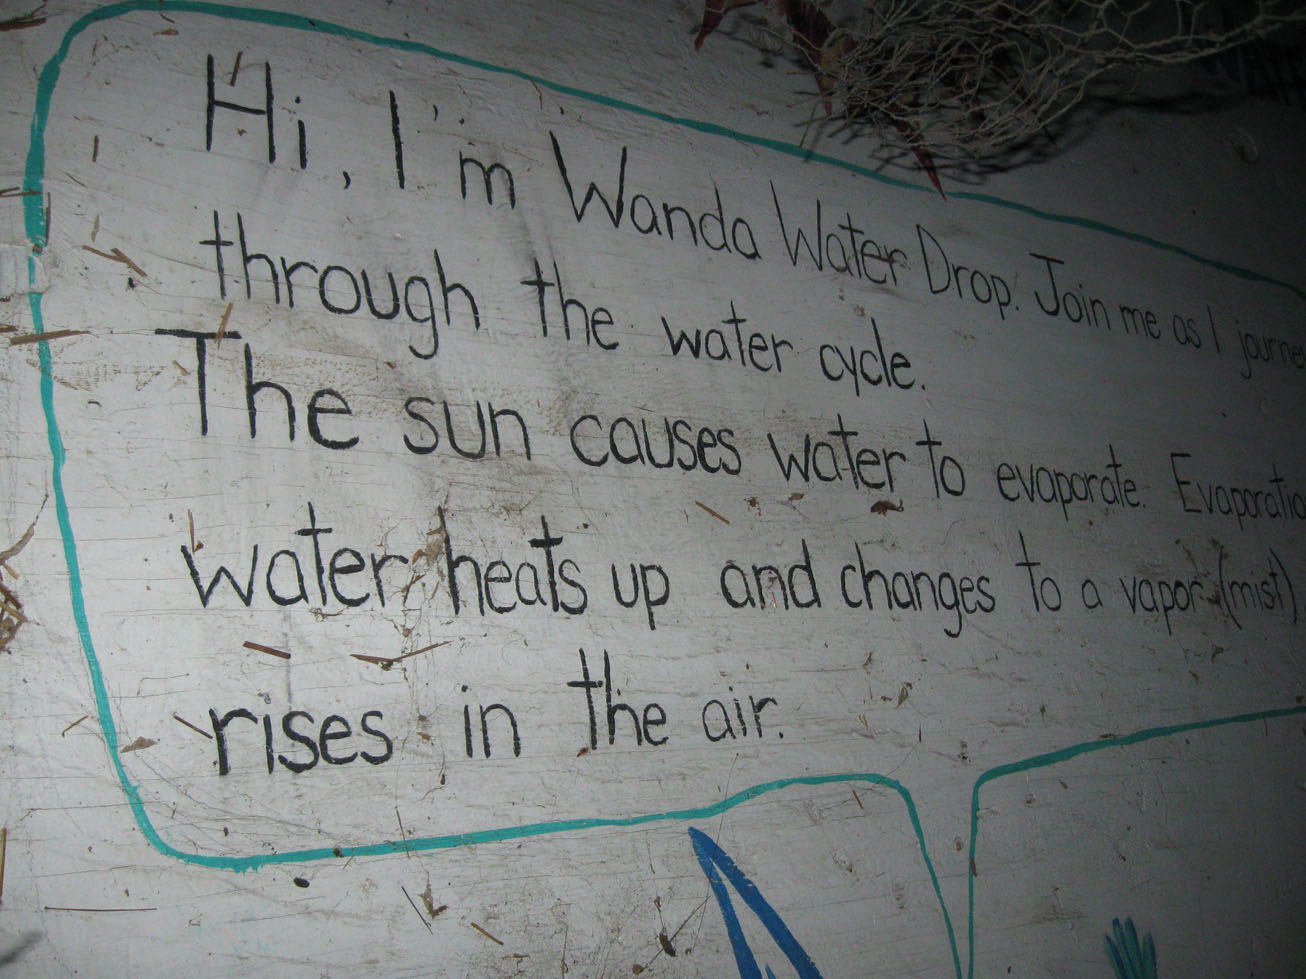 Hi, I'm Wanda Water Drop. Join me as I journe
through the water cycle.
The sun causes water to evaporate. Evaporatio
water heats up and changes to a vapor (mist)
rises in the air.